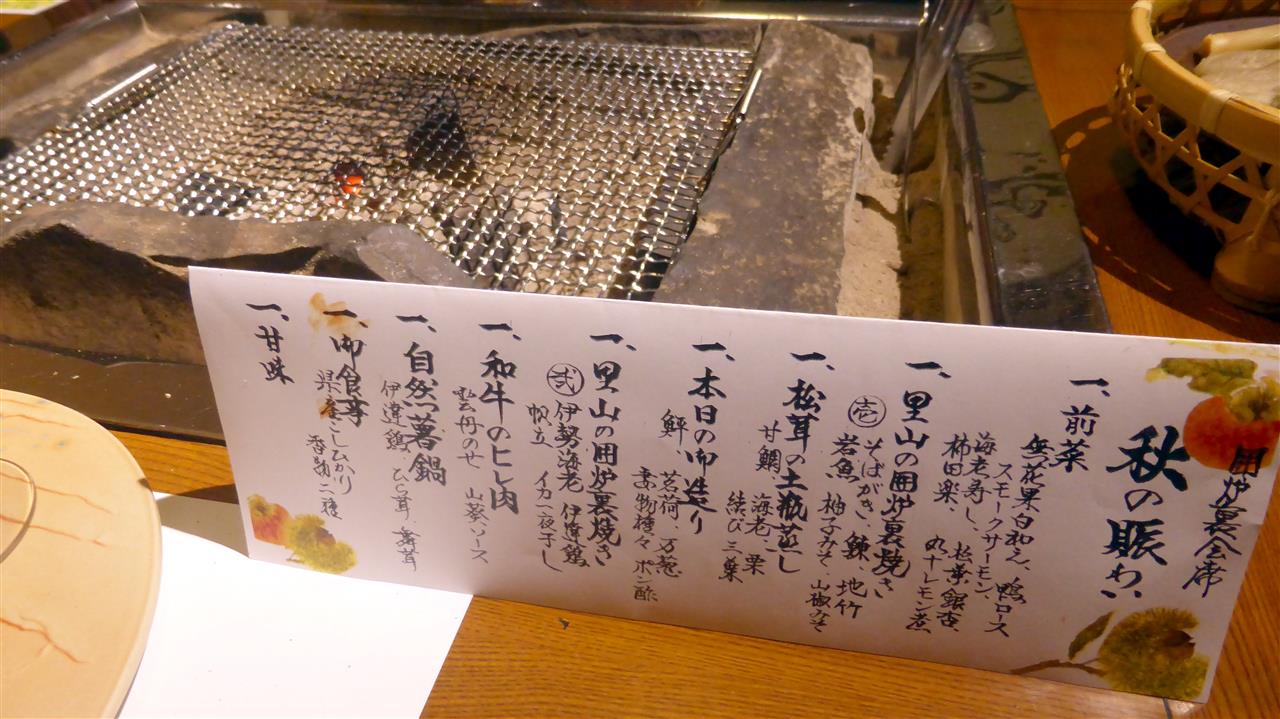 囲炉裏会席
秋の賑わい
一、前菜
無花果白和え、鴨ロース
スモークサーモン、
海老寿し、松葉銀杏、
柿田楽、丸十レモン煮
一、里山の囲炉裏焼き
壱 そばがき、鰊、地竹
岩魚 柚子みそ、山椒みそ
一、松茸の土瓶蒸し
甘鯛、海老、栗
結び三葉
一、本日の御造り
鮃、茗荷、万葱
妻物種々 ポン酢
一、里山の囲炉裏焼き
弐 伊勢海老 伊達鶏
帆立 イカ一夜干し
一、和牛のヒレ肉
雲丹のせ 山葵ソース
一、自然薯鍋
伊達鶏 ひら茸 舞茸
一、御食事
県産こしひかり
香物二種
一、甘味